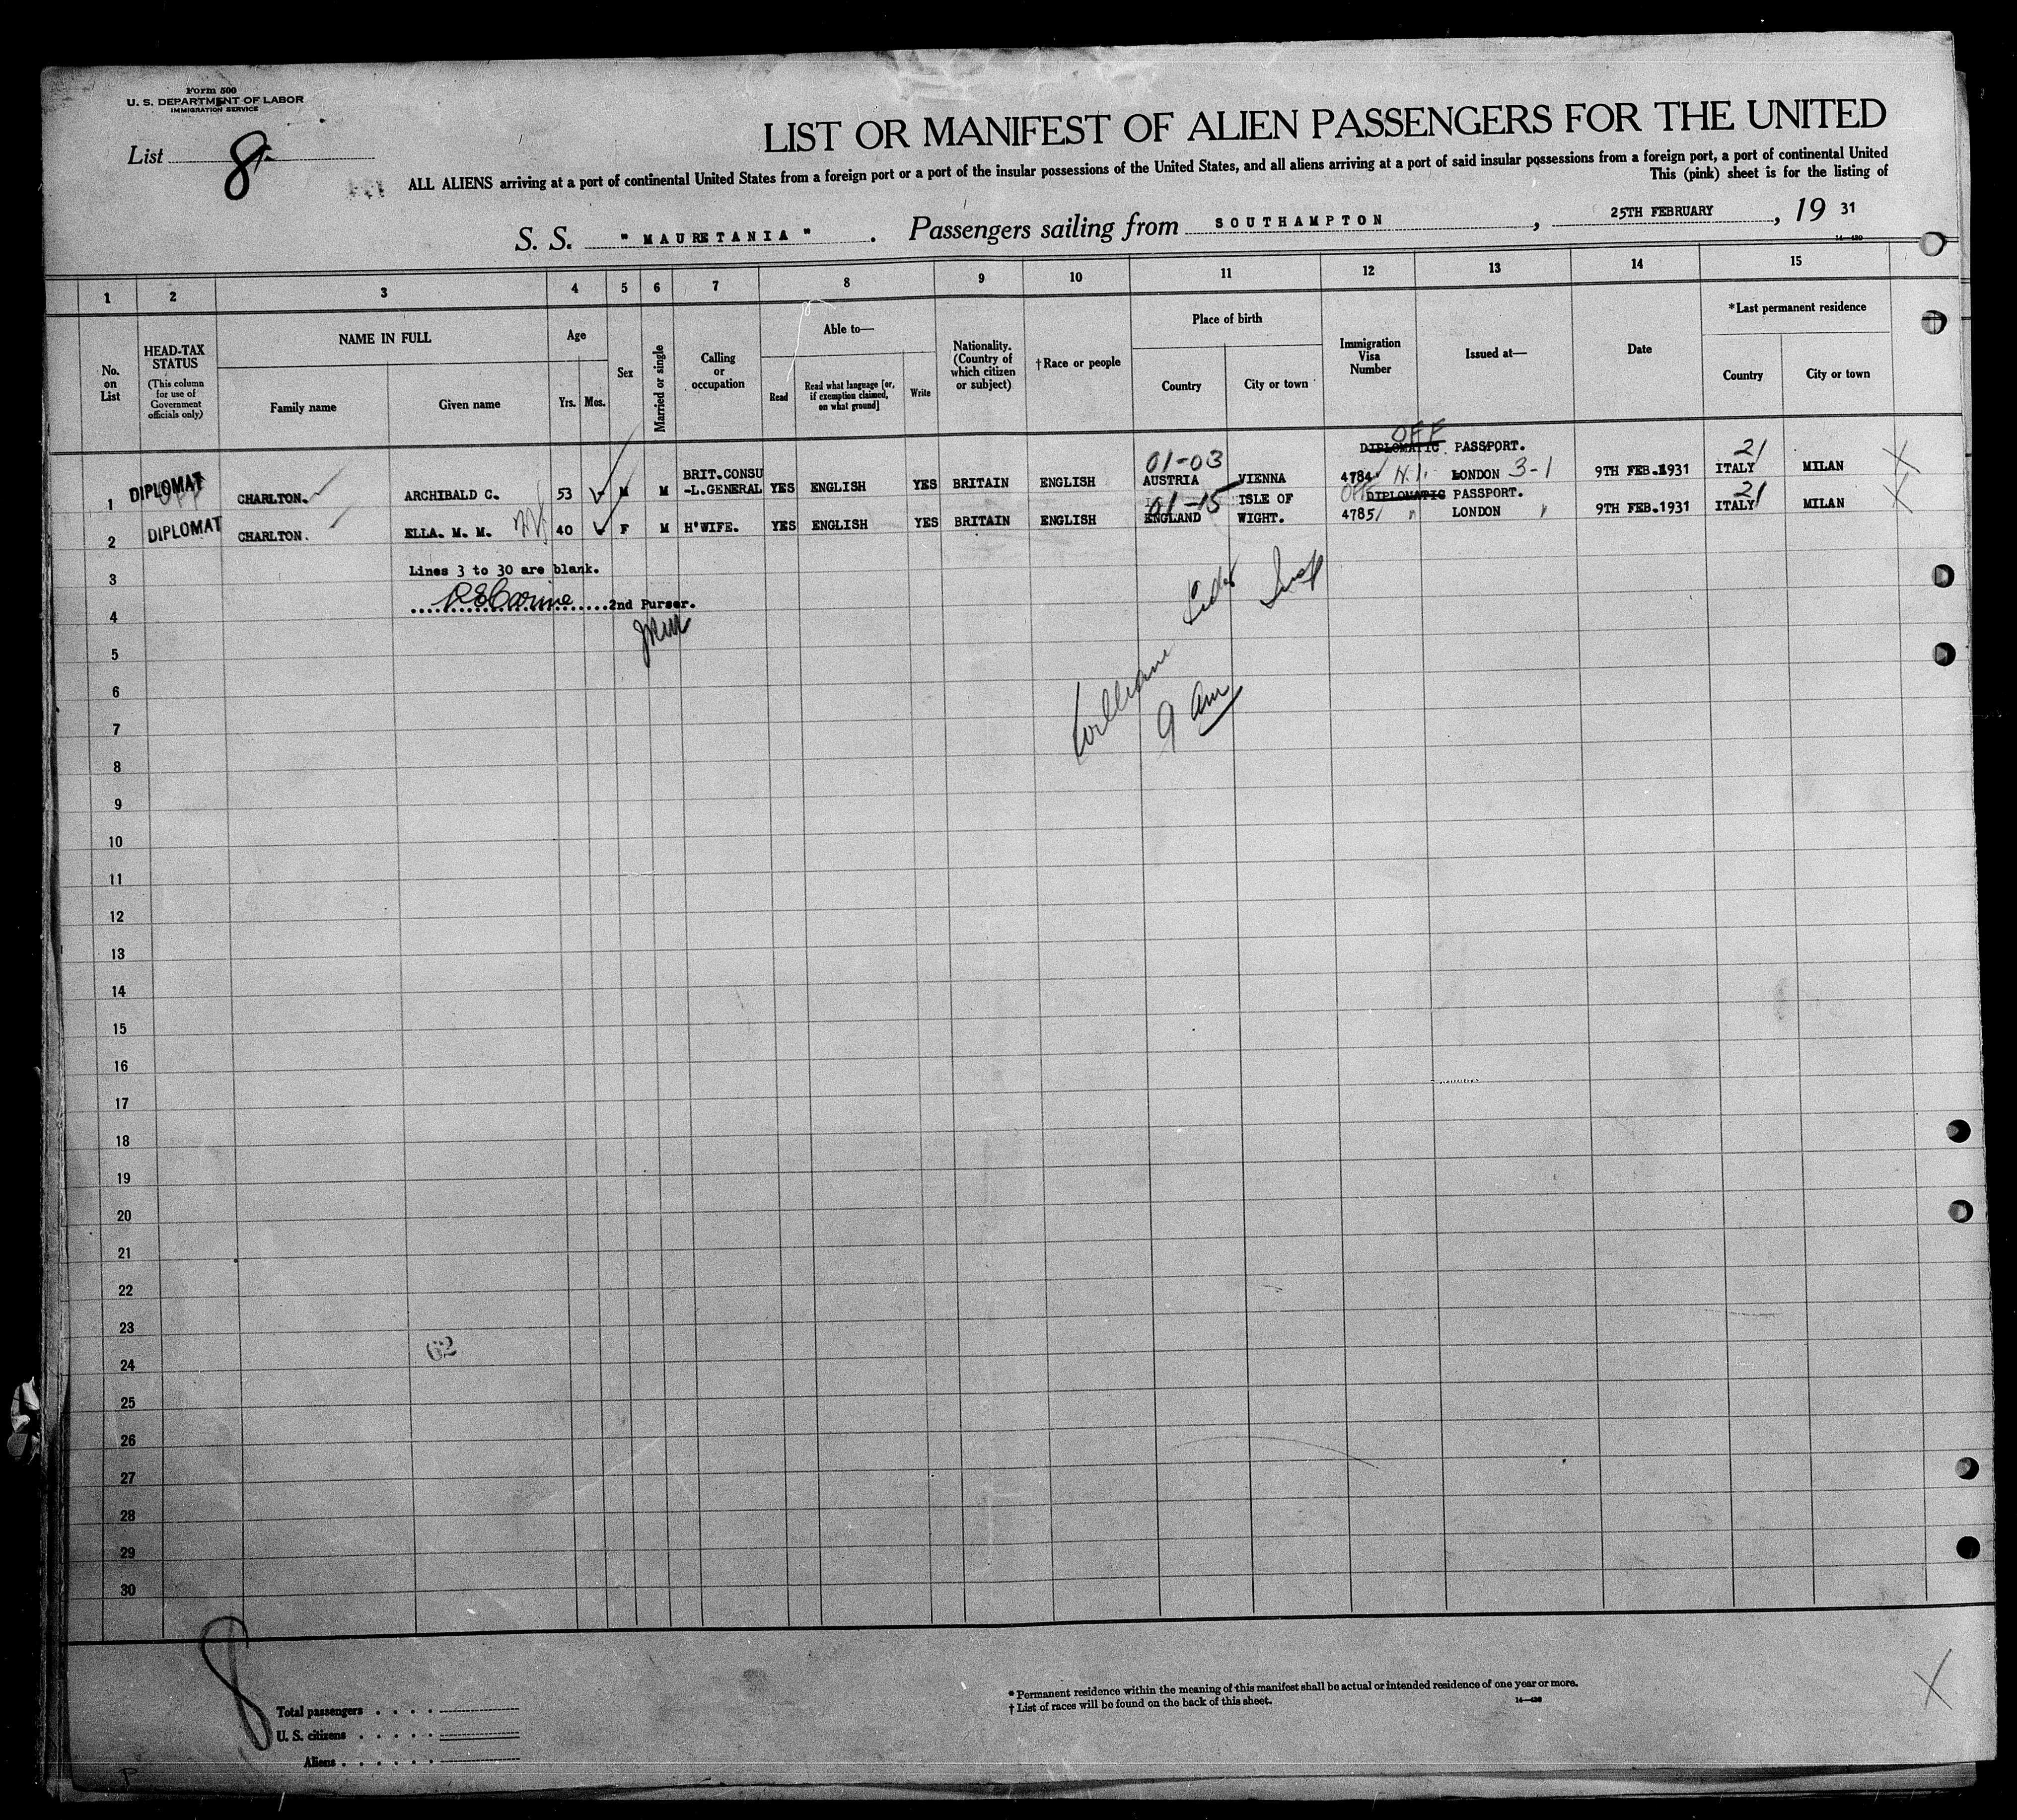 Form 500
U. S. DEPARTMENT OF LABOR
IMMIGRATION SERVICE
List 8
LIST OR MANIFEST OF ALIEN PASSENGERS FOR THE UNITED
ALL ALIENS arriving at a port of continental United States from a foreign port or a port of the insular possessions of the United States, and all aliens arriving at a port of said insular possessions from a foreign port, a port of continental United
This (pink) sheet is for the listing of
S. S. " MAURETANIA " . Passengers sailing from SOUTHAMPTON , 25TH FEBRUARY , 19 31
14—430
1 2 3 4 5 6 7 8 9 10 11 12 13 14 15
No. on List
HEAD-TAX STATUS
(This column for use of Government officials only)
NAME IN FULL
Family name
Given name
Age
Yrs.
Mos.
Sex
Married or single
Calling or occupation
Able to—
Read
Read what language [or, if exemption claimed, on what ground]
Write
Nationality. (Country of which citizen or subject)
†Race or people
Place of birth
Country
City or town
Immigration Visa Number
Issued at—
Date
*Last permanent residence
Country
City or town
OFF
01-03 DIPLOMATIC PASSPORT. 21
1 DIPLOMAT OFF CHARLTON. ARCHIBALD C. 53 M M BRIT.CONSU-L.GENERAL YES ENGLISH YES BRITAIN ENGLISH AUSTRIA VIENNA 4784 N.I. LONDON 3-1 9TH FEB.1931 ITALY MILAN X
01-15 OFF DIPLOMATIC PASSPORT. 21
2 DIPLOMAT CHARLTON. ELLA. M. M. 40 F M H'WIFE. YES ENGLISH YES BRITAIN ENGLISH ENGLAND ISLE OF WIGHT. 4785 " LONDON 9TH FEB.1931 ITALY MILAN X
3 Lines 3 to 30 are blank.
4 2nd Purser.
5
6
William
9 am
7
8
9
10
11
12
13
14
15
16
17
18
19
20
21
22
23
62
24
25
26
27
28
29
30
8
Total passengers
U. S. citizens
Aliens
* Permanent residence within the meaning of this manifest shall be actual or intended residence of one year or more.
† List of races will be found on the back of this sheet.
14—430
X
P